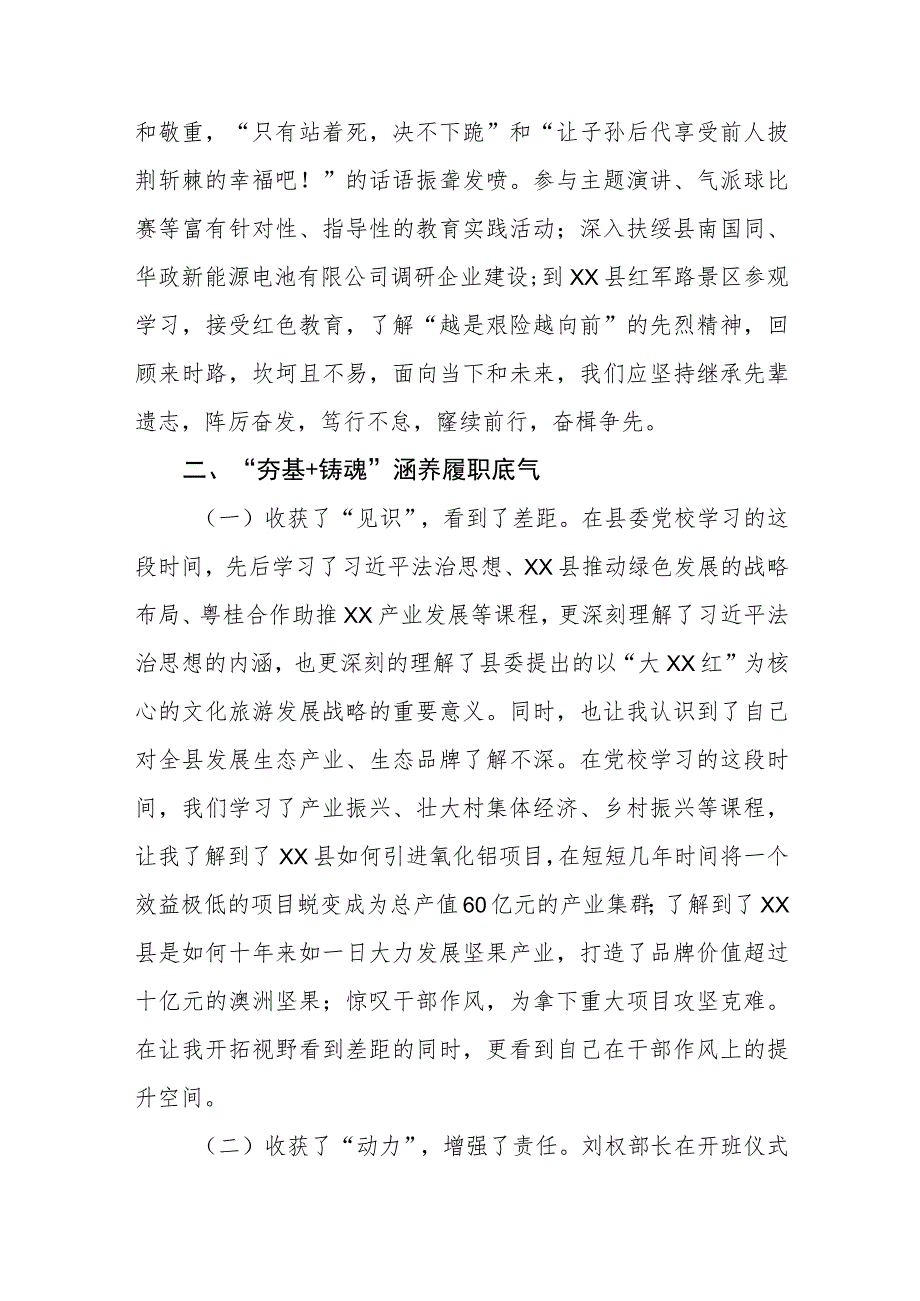 和敬重，“只有站着死，决不下跪”和“让子孙后代享受前人披
荆斩棘的幸福吧！”的话语振聋发喷。参与主题演讲、气派球比
赛等富有针对性、指导性的教育实践活动；深入扶绥县南国同、
华政新能源电池有限公司调研企业建设;到 XX 县红军路景区参观
学习，接受红色教育，了解“越是艰险越向前”的先烈精神，回
顾来时路，坎坷且不易，面向当下和未来，我们应坚持继承先辈
遗志，阵厉奋发，笃行不怠，窿续前行，奋楫争先。
二、“夯基+铸魂”涵养履职底气
（一）收获了“见识”，看到了差距。在县委党校学习的这
段时间，先后学习了习近平法治思想、XX 县推动绿色发展的战略
布局、粤桂合作助推 XX 产业发展等课程，更深刻理解了习近平法
治思想的内涵，也更深刻的理解了县委提出的以“大 XX 红”为核
心的文化旅游发展战略的重要意义。同时，也让我认识到了自己
对全县发展生态产业、生态品牌了解不深。在党校学习的这段时
间，我们学习了产业振兴、壮大村集体经济、乡村振兴等课程，
让我了解到了 XX 县如何引进氧化铝项目，在短短几年时间将一个
效益极低的项目蜕变成为总产值 60 亿元的产业集群；了解到了 XX
县是如何十年来如一日大力发展坚果产业，打造了品牌价值超过
十亿元的澳洲坚果；惊叹干部作风，为拿下重大项目攻坚克难。
在让我开拓视野看到差距的同时，更看到自己在干部作风上的提
升空间。
（二）收获了“动力”，增强了责任。刘权部长在开班仪式